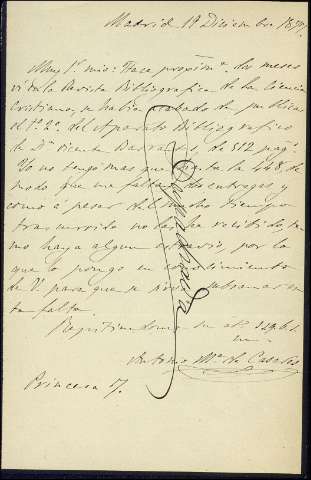 Madrid 19 Diciembre 1877.
Muy Sr. mio: Hace próximte. dos meses
vi en la Revista Bibliografica de la Ciencia
Cristiana, se habia acabado de publicar
el tº. 2º. del Aparato Bibliografico
de Dn. Vicente Barrantes, de 512 pags.
Yo no tengo mas que hasta la 448, de
modo que me faltan dos entregas y
como á pesar del mucho tiempo
trascurrido no las he recibido, te-
mo haya algun extravio, por lo
que lo pongo en conocimiento
de V. para que se sirva subsanar es-
ta falta.
Repitiendome su
Antonio Mª. de
Princesa 17.
Despachada